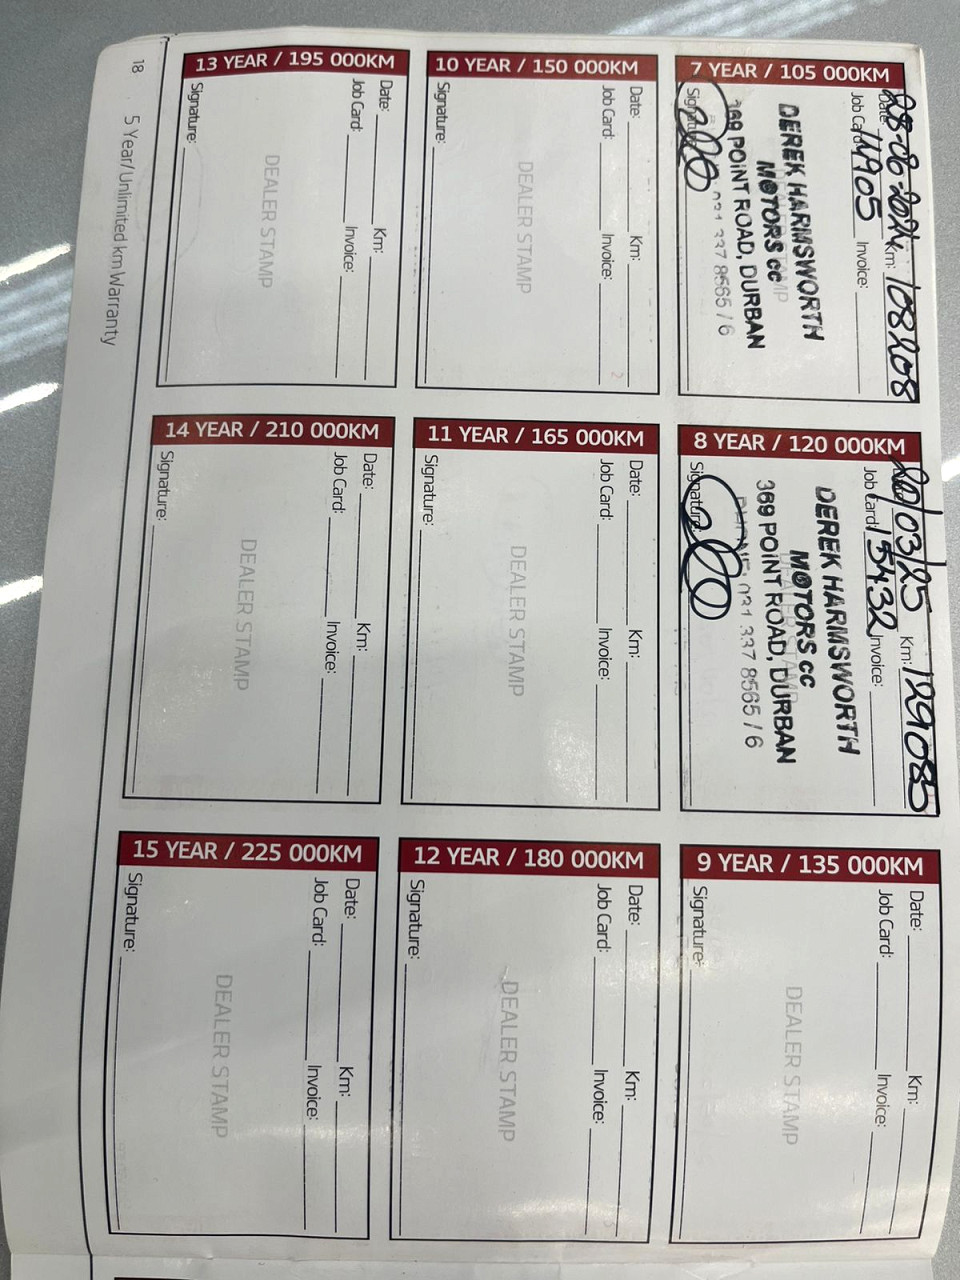 7 YEAR / 105 000KM
Date: 28-08-2024 Km: 108208
Job Card: 14905 Invoice:
DEALER STAMP
DEREK HARMSWORTH
MOTORS cc
369 POINT ROAD, DURBAN
031 337 8565 / 6
Signature:
8 YEAR / 120 000KM
20/03/25 Km: 129085
Job Card: 15432 Invoice:
DEALER STAMP
DEREK HARMSWORTH
MOTORS cc
369 POINT ROAD, DURBAN
PHONE: 031 337 8565 / 6
Signature:
9 YEAR / 135 000KM
Date: Km:
Job Card: Invoice:
DEALER STAMP
Signature:
10 YEAR / 150 000KM
Date: Km:
Job Card: Invoice:
DEALER STAMP
Signature:
11 YEAR / 165 000KM
Date: Km:
Job Card: Invoice:
DEALER STAMP
Signature:
12 YEAR / 180 000KM
Date: Km:
Job Card: Invoice:
DEALER STAMP
Signature:
13 YEAR / 195 000KM
Date: Km:
Job Card: Invoice:
DEALER STAMP
Signature:
14 YEAR / 210 000KM
Date: Km:
Job Card: Invoice:
DEALER STAMP
Signature:
15 YEAR / 225 000KM
Date: Km:
Job Card: Invoice:
DEALER STAMP
Signature:
18 5 Year/Unlimited km Warranty